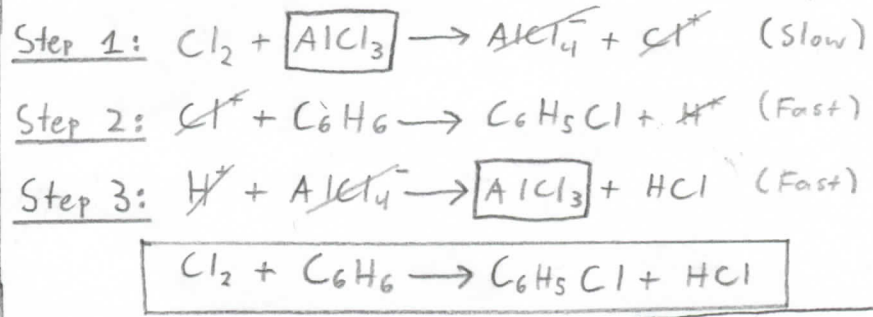 Step 1: Cl₂ + AlCl₃ → AlCl₄⁻ + Cl⁺ (Slow)
Step 2: Cl⁺ + C₆H₆ → C₆H₅Cl + H⁺ (Fast)
Step 3: H⁺ + AlCl₄⁻ → AlCl₃ + HCl (Fast)
Cl₂ + C₆H₆ → C₆H₅Cl + HCl